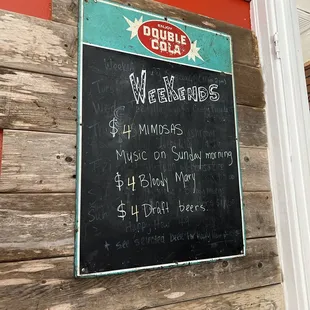 DOUBLE
COLA
WEEKENDS
$4 MIMOSAS
Music on Sunday morning
$4 Bloody Mary
$4 Draft beers.